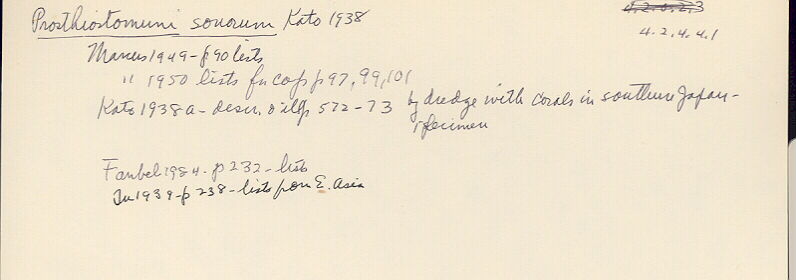 Prosthiostomum sonorum Kato 1938
4.2.6.2.3
4.2.4.4.1
Marcus 1949 - p 90 lists
" 1950 lists fn caps p 97, 99, 101
Kato 1938a - descr. & illp 572-73 by dredge with corals in southern Japan -
1 specimen
Faubel 1984 - p 232 - lists
Tu 1939 - p 238 - lists from E. Asia